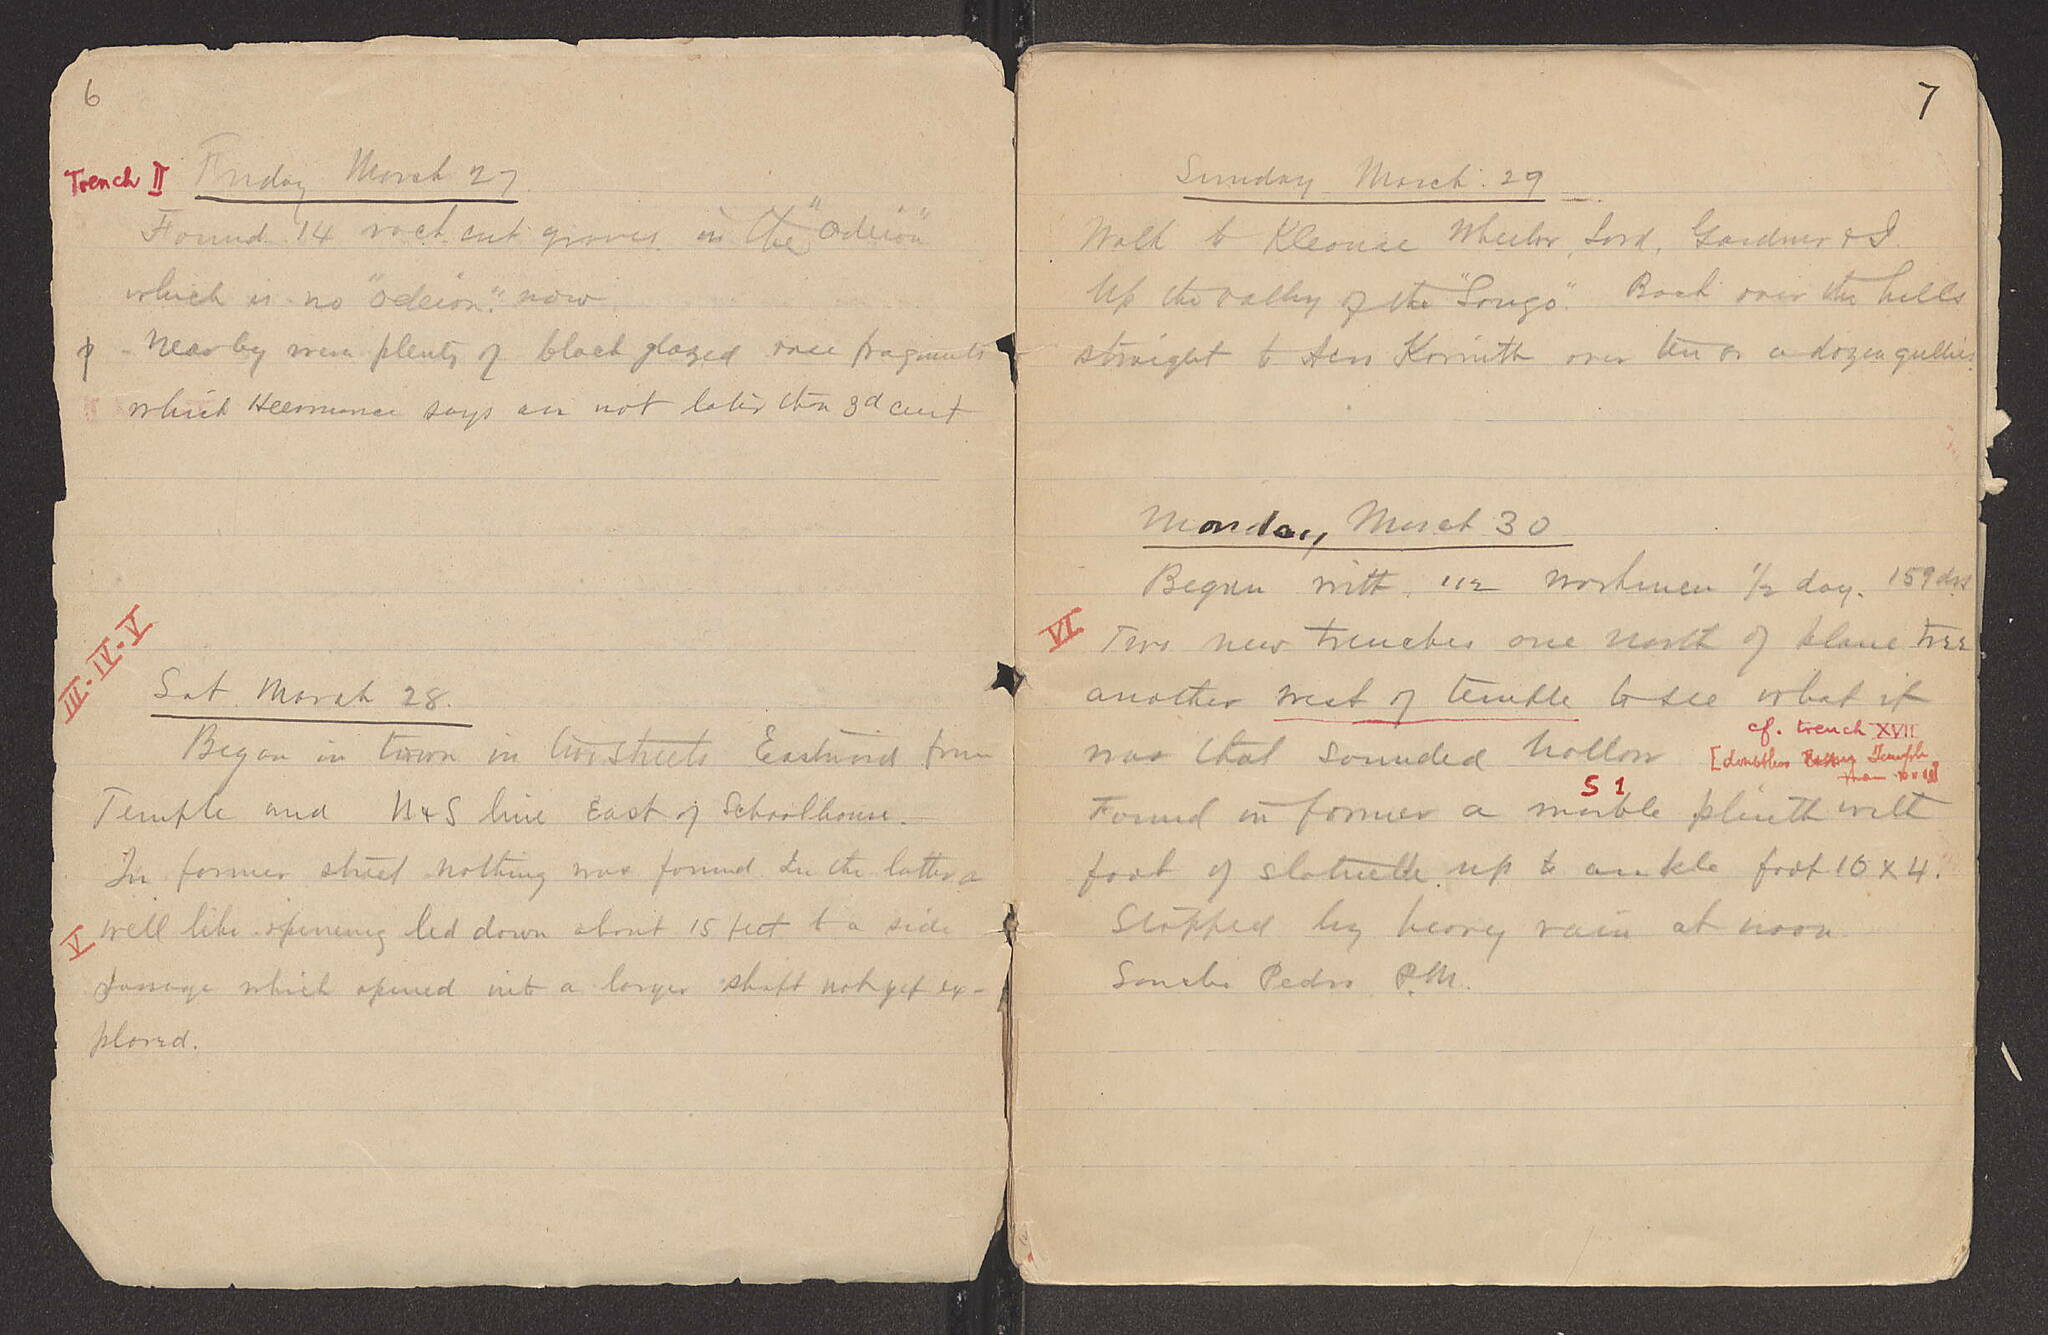 6
Trench II Friday March 27
Found 14 rock cut graves in the "Odeion"
which is no "Odeion" now
Near by were plenty of black glazed vase fragments
which Heermance says are not later than 3d cent
III·IV·V
Sat. March 28.
Began in town in two streets Eastward from
Temple and N & S line East of Schoolhouse.
In former street nothing was found In the latter a
V well like opening led down about 15 feet to a side
passage which opened into a larger shaft not yet ex-
plored.
7
Sunday March 29
Walk to Kleonae Wheeler, Lord, Gardner & I.
Up the valley of the "Longo". Back over the hills
straight to Acro Korinth over ten or a dozen gullies.
Monday, March 30
Began with 112 workmen 1/2 day. 159 drs
VI Two new trenches one north of plane tree
another west of temple to see what it
was that sounded hollow
cf. trench XVII
[doubtless Temple
S 1
Found in former a marble plinth with
foot of statuette up to ankle foot 10 x 4.
Stopped by heavy rain at noon
Sancho Pedro P.M.